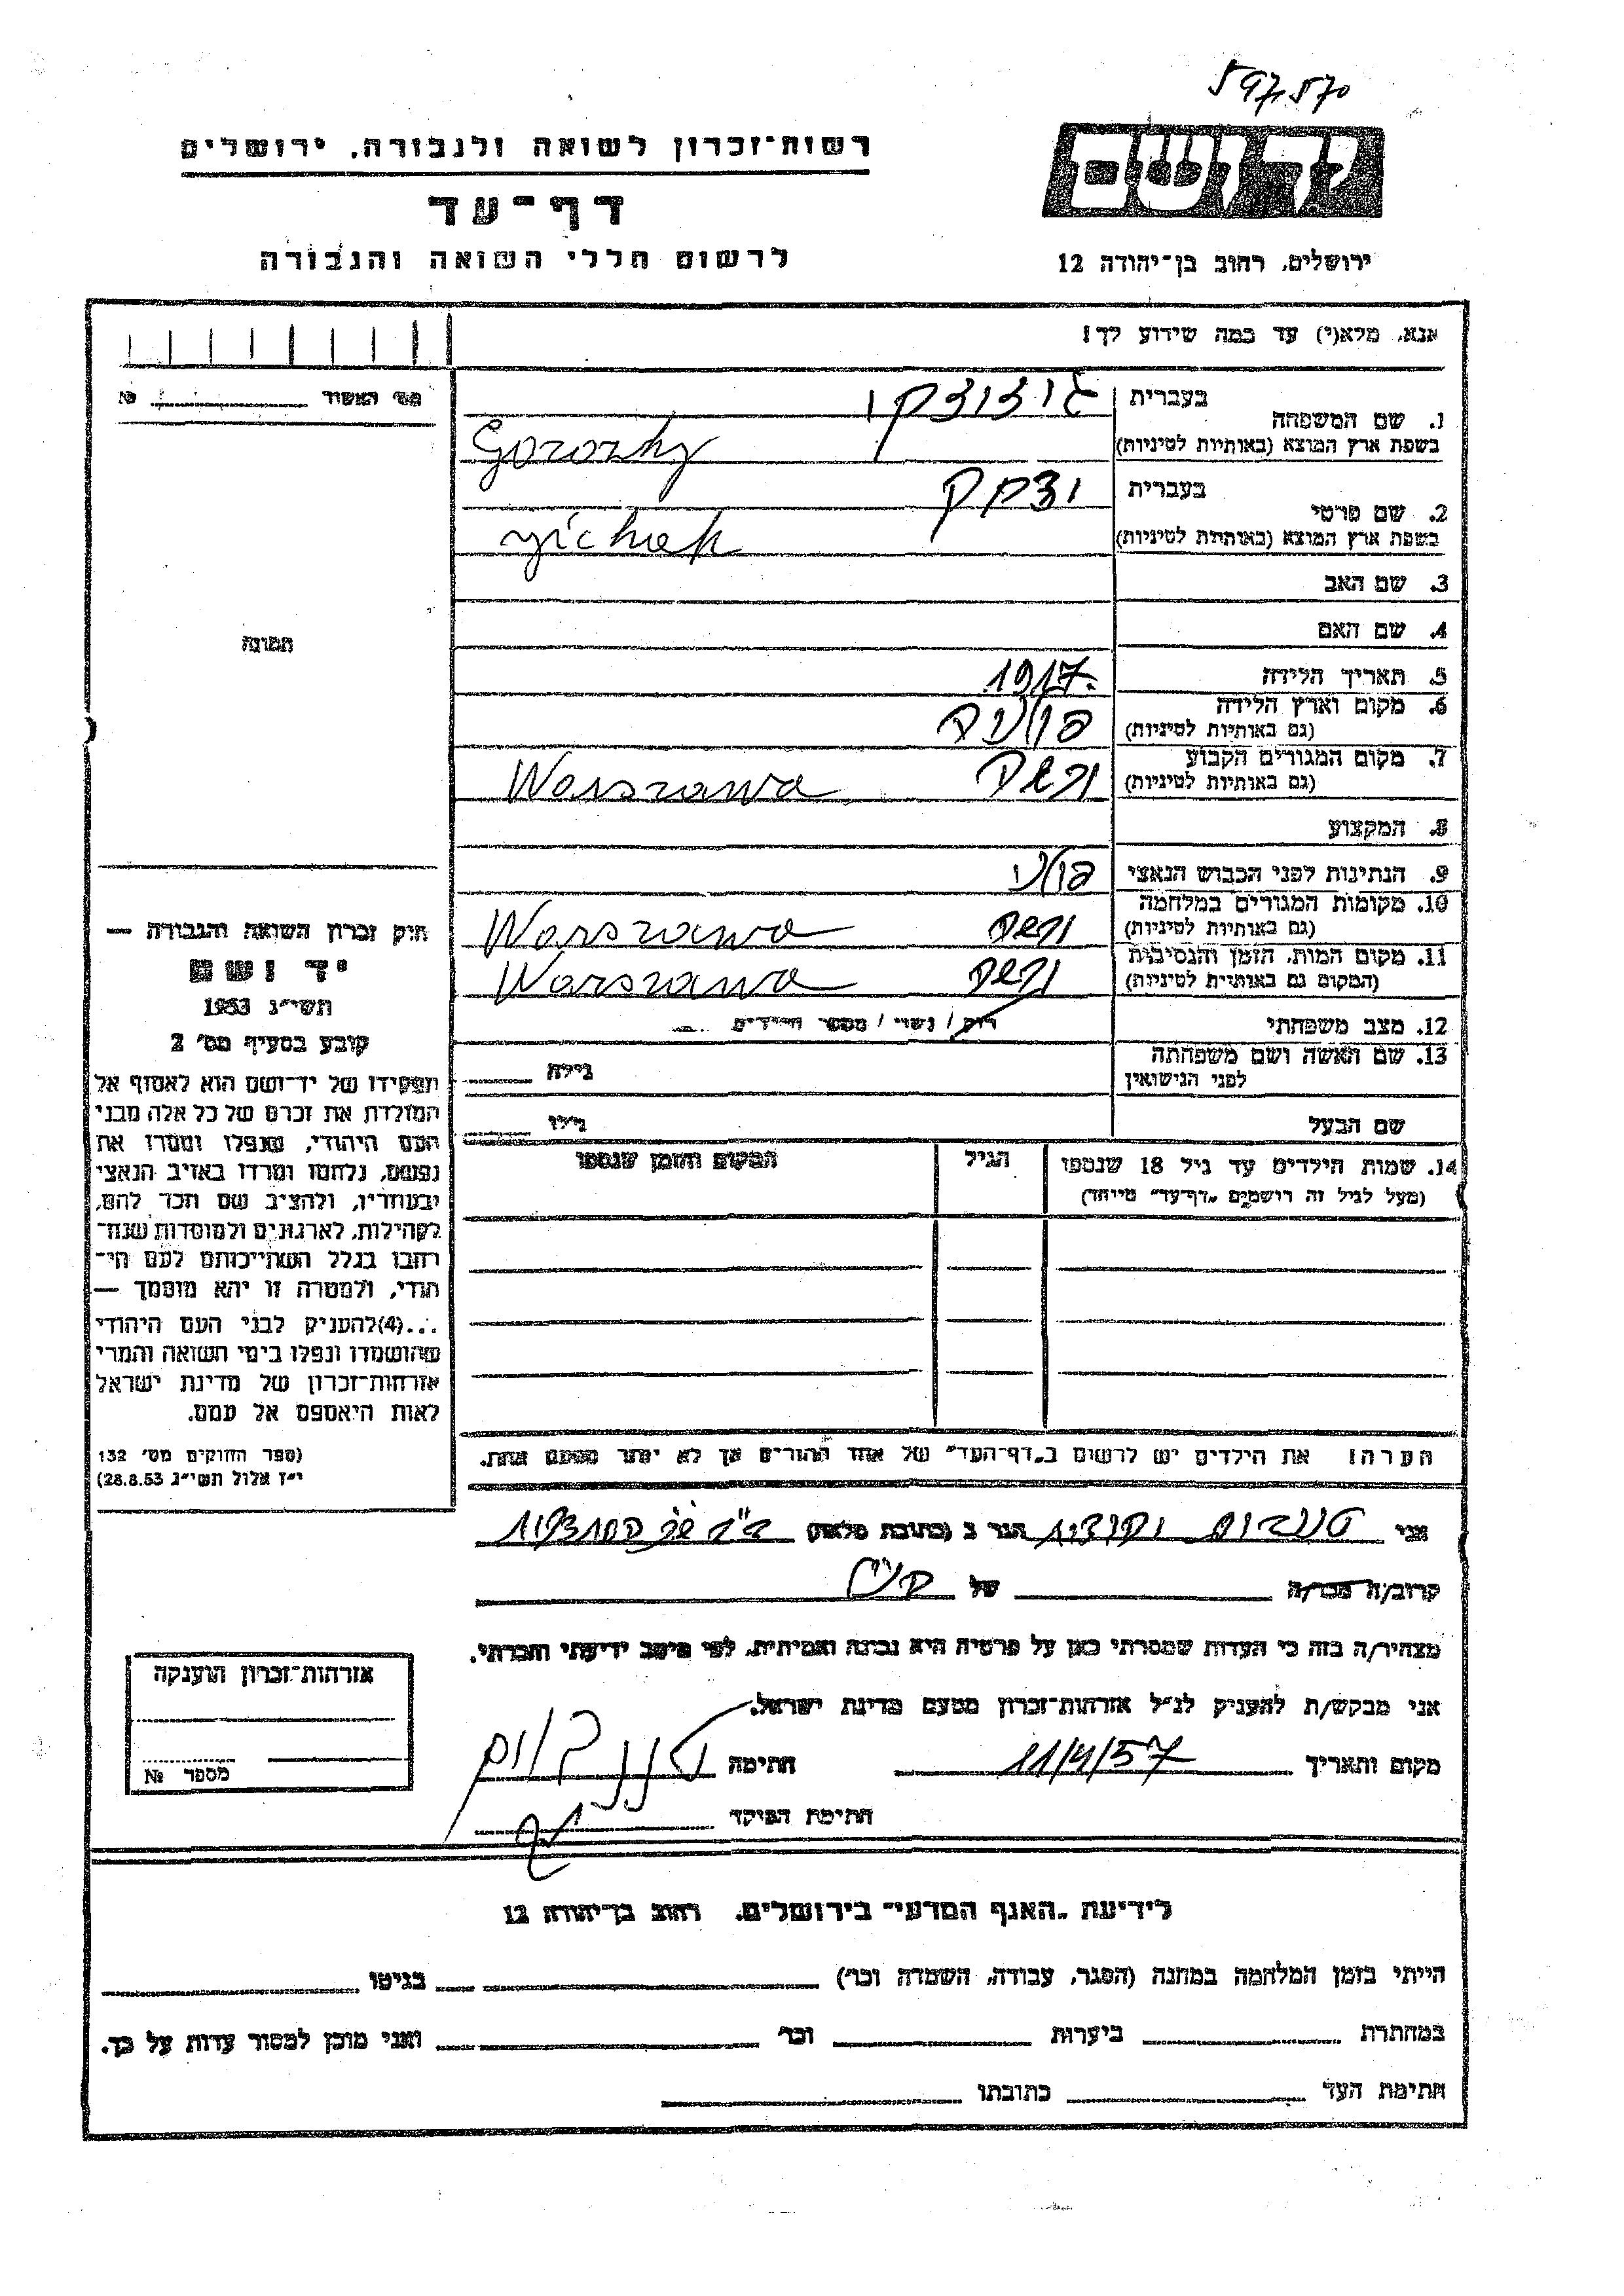 597,570
רשות-זכרון לשואה ולגבורה, ירושלים
דף-עד
לרשום חללי השואה והגבורה
יד ושם
ירושלים, רחוב בן-יהודה 12
אנא, מלא(י) עד כמה שידוע לך!
מס' האשור № 
תמונה
1. שם המשפחה
בעברית
בשפת ארץ המוצא (באותיות לטיניות)
2. שם פרטי
בעברית יצחק
בשפת ארץ המוצא (באותיות לטיניות)
3. שם האב
4. שם האם
5. תאריך הלידה 1917.
6. מקום וארץ הלידה
(גם באותיות לטיניות)
7. מקום המגורים הקבוע
(גם באותיות לטיניות) Warszawa
8. המקצוע
9. הנתינות לפני הכבוש הנאצי
10. מקומות המגורים במלחמה
(גם באותיות לטיניות) Warszawa
11. מקום המות, הזמן והנסיבות
(המקום גם באותיות לטיניות) Warszawa
12. מצב משפחתי רווק / נשוי / מספר הילדים
13. שם האשה ושם משפחתה
לפני הנישואין
גילה
שם הבעל
גילו
14. שמות הילדים עד גיל 18 שנספו
(מעל לגיל זה רושמים "דף-עד" מיוחד)
הגיל
המקום והזמן שנספו
הערה: את הילדים יש לרשום ב"דף-העד" של אחד ההורים אך לא יותר מפעם אחת.
חוק זכרון השואה והגבורה —
יד ושם
תשי"ג 1953
קובע בסעיף מס' 2
תפקידו של יד-ושם הוא לאסוף אל
המולדת את זכרם של כל אלה מבני
העם היהודי, שנפלו ומסרו את
נפשם, נלחמו ומרדו באויב הנאצי
ובעוזריו, ולהציב שם וזכר להם,
לקהילות, לארגונים ולמוסדות שנח-
רבו בגלל השתייכותם לעם הי-
הודי, ולמטרה זו יהא מוסמך —
...(4)להעניק לבני העם היהודי
שהושמדו ונפלו בימי השואה והמרי
אזרחות-זכרון של מדינת ישראל
לאות היאספם אל עמם.
(ספר החוקים מס' 132
י"ז אלול תשי"ג 28.8.53)
אני
הגר ב (כתובת מלאה)
קרוב/ה מכר/ה
של
מצהיר/ה בזה כי העדות שמסרתי כאן על פרטיה היא נכונה ואמיתית, לפי מיטב ידיעתי והכרתי.
אני מבקש/ת להעניק לנ"ל אזרחות-זכרון מטעם מדינת ישראל.
מקום ותאריך 11/4/57 חתימה
חתימת הפקיד
אזרחות-זכרון הוענקה
מספר №
לידיעת "האגף המדעי" בירושלים, רחוב בן-יהודה 12
הייתי בזמן המלחמה במחנה (הסגר, עבודה, השמדה וכו') בגיטו
במחתרת ביערות וכו' ואני מוכן למסור עדות על כך.
חתימת העד כתובתו